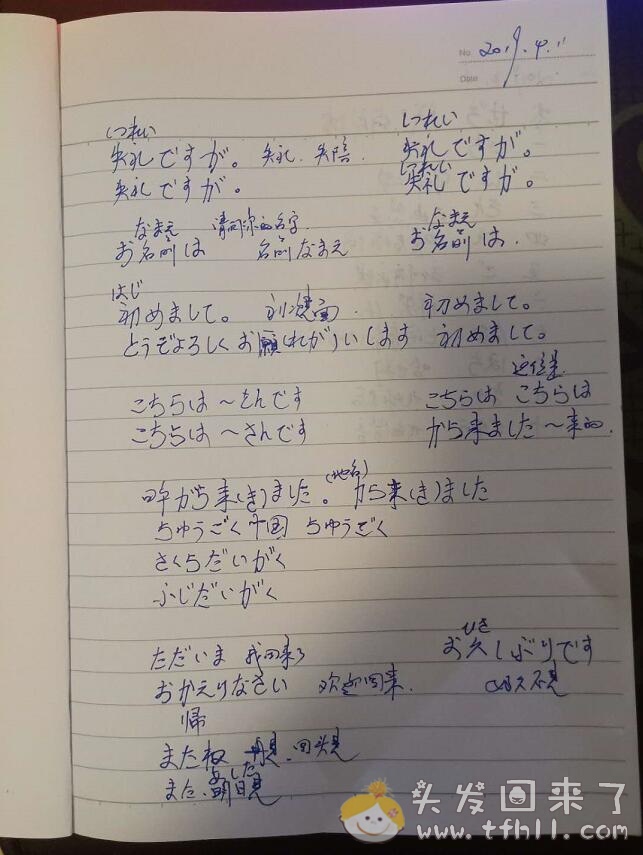 No. 2019.4.11
Date
しつれい しつれい
失礼ですが。 失礼. 失陪. 失礼ですが。
しつれい
失礼ですが。 失礼ですが。
なまえ 请问你的名字 なまえ
お名前は 名前なまえ お名前は.
はじ
初めまして。 初次见面. 初めまして。
どうぞよろしくお願(ねが)いします 初めまして。
这位是
こちらは〜さんです こちらは こちらは
こちらは〜さんです から来ました〜来的.
(地名)
から来(き)ました。 から来(き)ました
ちゅうごく 中国 ちゅうごく
さくらだいがく
ふじだいがく
ひさ
ただいま 我回来了 お久しぶりです
おかえりなさい 欢迎回来. 好久不见
帰
またね 再见. 回头见
あした
また. 明日見
头发回来了
www.tfhll.com